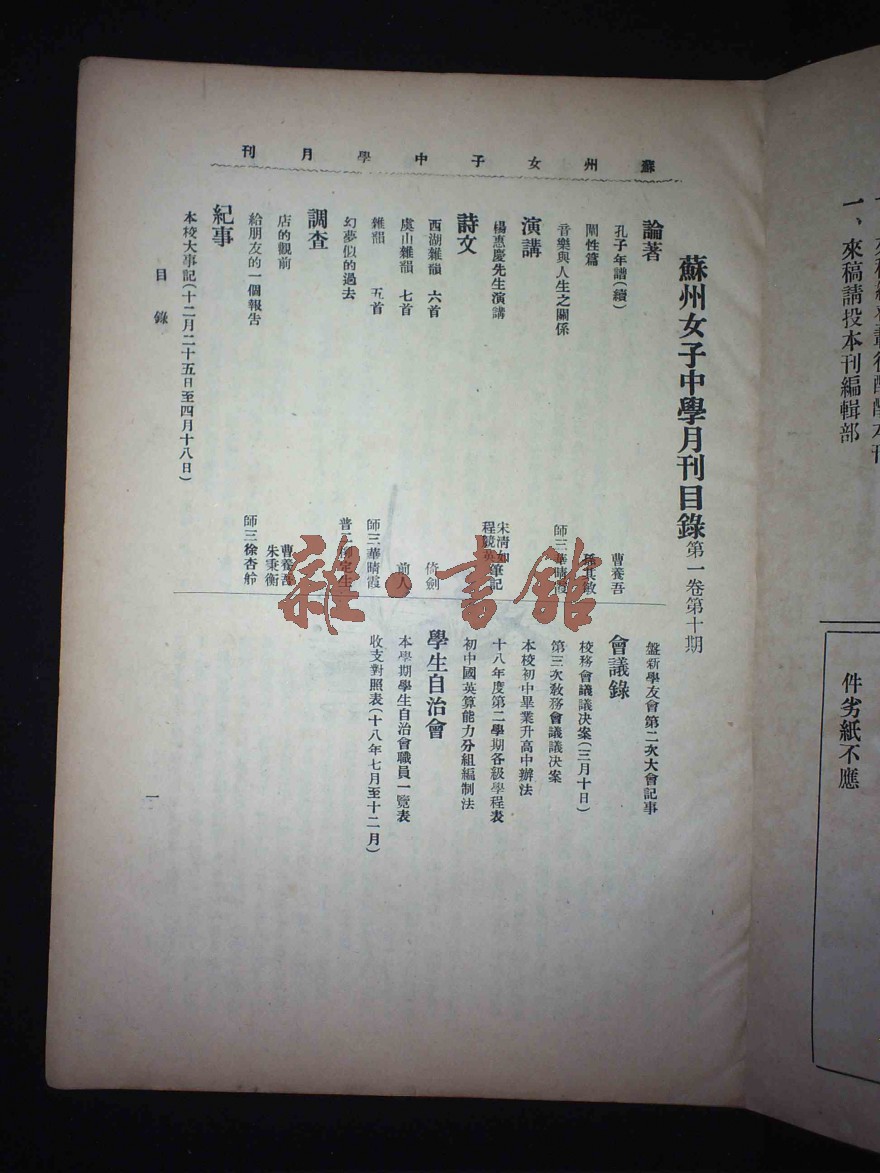 蘇州女子中學月刊
蘇州女子中學月刊目錄 第一卷第十期
論著
孔子年譜(續) 曹養吾
闡性篇 孫其敏
音樂與人生之關係 師三華晴霞
演講
楊惠慶先生演講 宋清如 程競英筆記
詩文
西湖雜韻 六首 倚劍
虞山雜韻 七首 前人
雜韻 五首 師三華晴霞
幻夢似的過去 普二柳定生
調查
店的觀前 曹養吾 朱秉衡
給朋友的一個報告 師三徐杏舲
紀事
本校大事記(十二月二十五日至四月十八日)
盤新學友會第二次大會記事
會議錄
校務會議議決案(三月十日)
第三次教務會議議決案
本校初中畢業升高中辦法
十八年度第二學期各級學程表
初中國英算能力分組編制法
學生自治會
本學期學生自治會職員一覽表
收支對照表(十八年七月至十二月)
目錄
一
一、來稿請投本刊編輯部
件劣紙不應
雜·書館